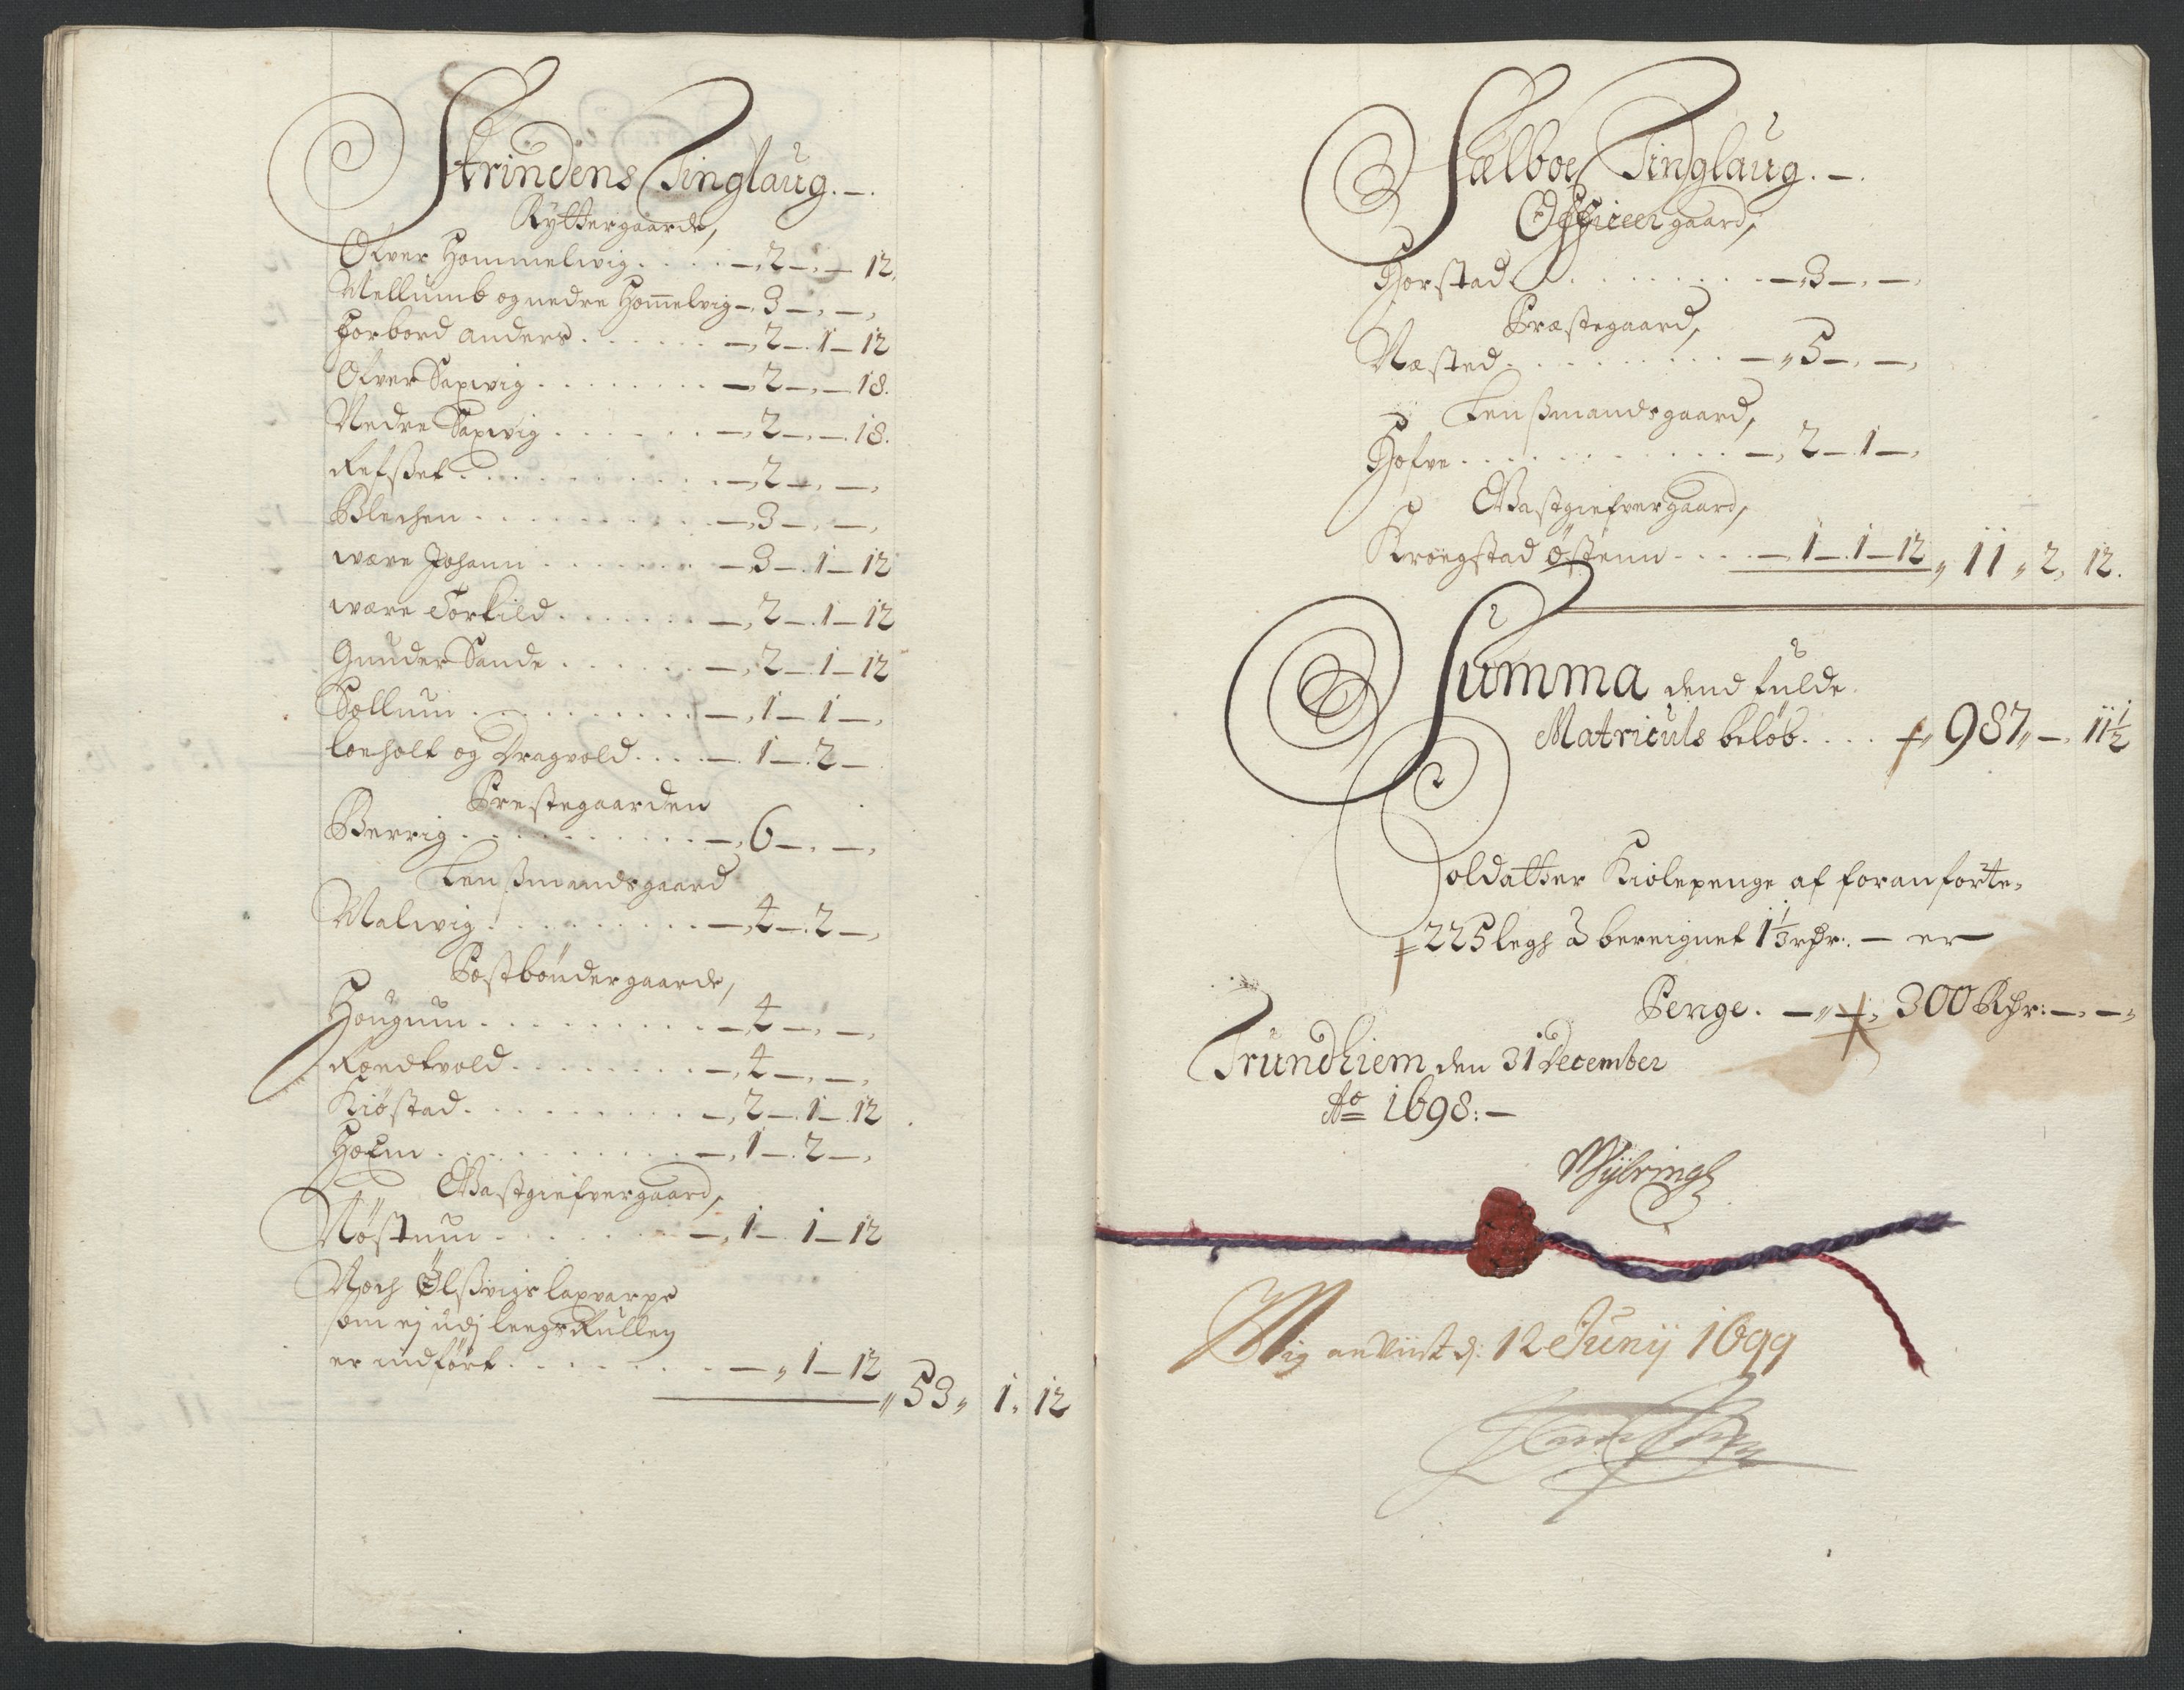 Strindens Tinglaug.
Ryttergaarde,
Ofver Hommelwig . . . . - 2 - , - 12.
Mellumb og nedre Hommelvig - 3 - , - ,
Forbord Anders . . . . . - 2 - 1 - 12
Ofver Saxwig . . . . . . - 2 - , - 18.
Nedre Saxwig . . . . . . - 2 - , - 18.
Refsset . . . . . . . - 2 - , - ,
Blechen . . . . . . . - 3 - , - ,
wære Johann . . . . . . - 3 - 1 - 12
wære Torkild . . . . . . - 2 - 1 - 12
Gunder Sande . . . . . - 2 - 1 - 12
Sollum . . . . . . . - 1 - 1 - ,
Loeholt og Dragvold . . . . - 1 - 2 -
Prestegaarden
Berrig . . . . . . . - 6 - , - ,
Lenssmandsgaard
Malwig . . . . . . . - 4 - 2 - ,
Postbøndergaarde,
Hougum . . . . . . . - 4 - , - ,
Rondtvold . . . . . . - 4 - , - ,
Kiøstad . . . . . . . - 2 - 1 - 12
Holm . . . . . . . - 1 - 2 - ,
Giæstgiefvergaard,
Nøstum . . . . . . - 1 - 1 - 12
Noch Ølssvigs laxvarpe
som ej udj leegs Rullen
er indført . . . . . . - , 1 - 12
53 , 1 , 12
Sælboe Tinglaug.
Officeer gaard,
Horstad . . . . . . . - 3 - , - ,
Præstegaard,
Næsted . . . . . . . - 5 - , - ,
Lenssmandsgaard,
Hofve . . . . . . . - 2 - 1 - ,
Giæstgiefvergaard,
Krogstad Østenn . . . . - 1 - 1 - 12 , 11 , 2, 12.
Summa dend fulde
Matriculs beløb . . . . 987 , - , 11 1/2
Soldatter Kiolepenge af foranførte
225 legh à bereignet 1 1/3 rdr: - er
Penge . - , - , 300 Rdr: - , - ,
Trundhiem den 31 December
Ao 1698: -
Mig anviist d: 12 Junij 1699